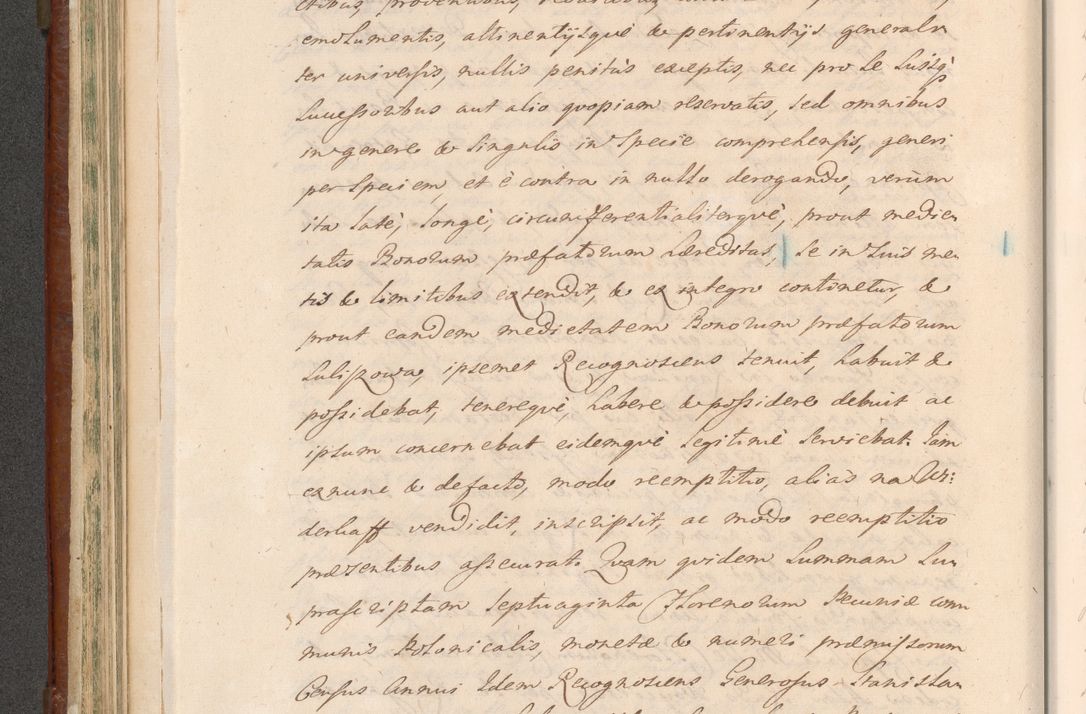 emolumentis, attinentijsquè & pertinentijs generali
ter universis, nullis penitùs exceptis, nec pro se suisq3
successoribus aut alio quopiam reservatis, sed omnibus
in genere & singulis in specie comprehensis, generi
per speciem, et è contra in nullo derogando, verùm
ita latè, longè, circumferentialiterquè, prout medie
tatis Bonorum præfatorum hæreditas, se in suis me
tis & limitibus extendit, & ex integro continetur, &
prout eandem medietatem Bonorum præfatorum
Suliszowa, ipsemet Recognoscens tenuit, habuit &
possidebat, tenerequè, habere & possidere debuit ac
ipsum concernebat eidemquè legitimè serviebat. Iam
exnunc & defacto, modo reemptitio, aliàs na Wi:
derkaff vendidit, inscripsit, ac modo reemptitio
præsentibus assecurat. Quam quidem summam su
prascriptam septuaginta Florenorum Pecuniæ com
munis Polonicalis, monetæ & numeri præmissorum
Census Annui Idem Recognoscens Generosus Stanisla